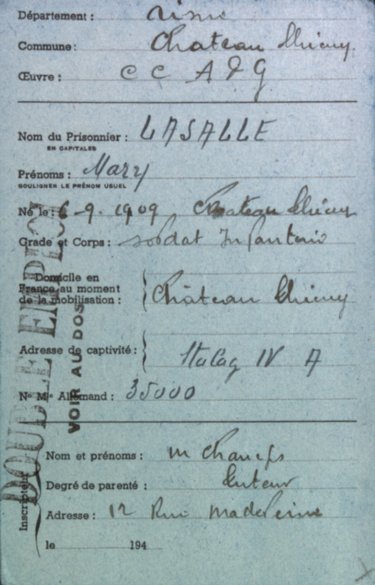 Département : Aisne
Commune : Chateau Thierry
Œuvre : C C A P G
Nom du Prisonnier : LASALLE
EN CAPITALES
Prénoms : Mary
SOULIGNER LE PRÉNOM USUEL
Né le : 6-9-1909 Chateau Thierry
Grade et Corps : soldat Infanterie
Domicile en
France au moment
de la mobilisation : Château Thierry
Adresse de captivité : Stalag IV A
N° Mle Allemand : 35000
Nom et prénoms : M
Degré de parenté : tuteur
Adresse : 12 Rue Madeleine
le 194
Inscripteur
DOUBLE EMPLOI
VOIR AU DOS